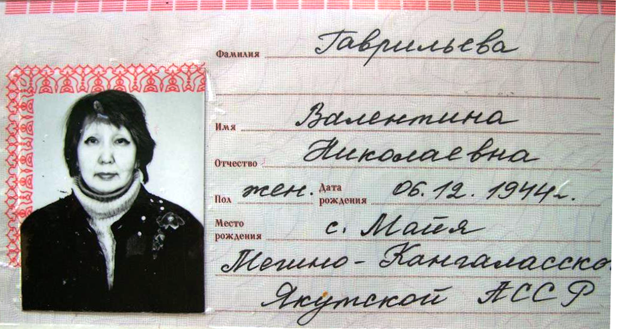 Фамилия Гаврильева
Имя Валентина
Отчество Николаевна
Пол жен. Дата рождения 06.12.1944г.
Место рождения с. Майя
Мегино-Кангаласско
Якутской АССР